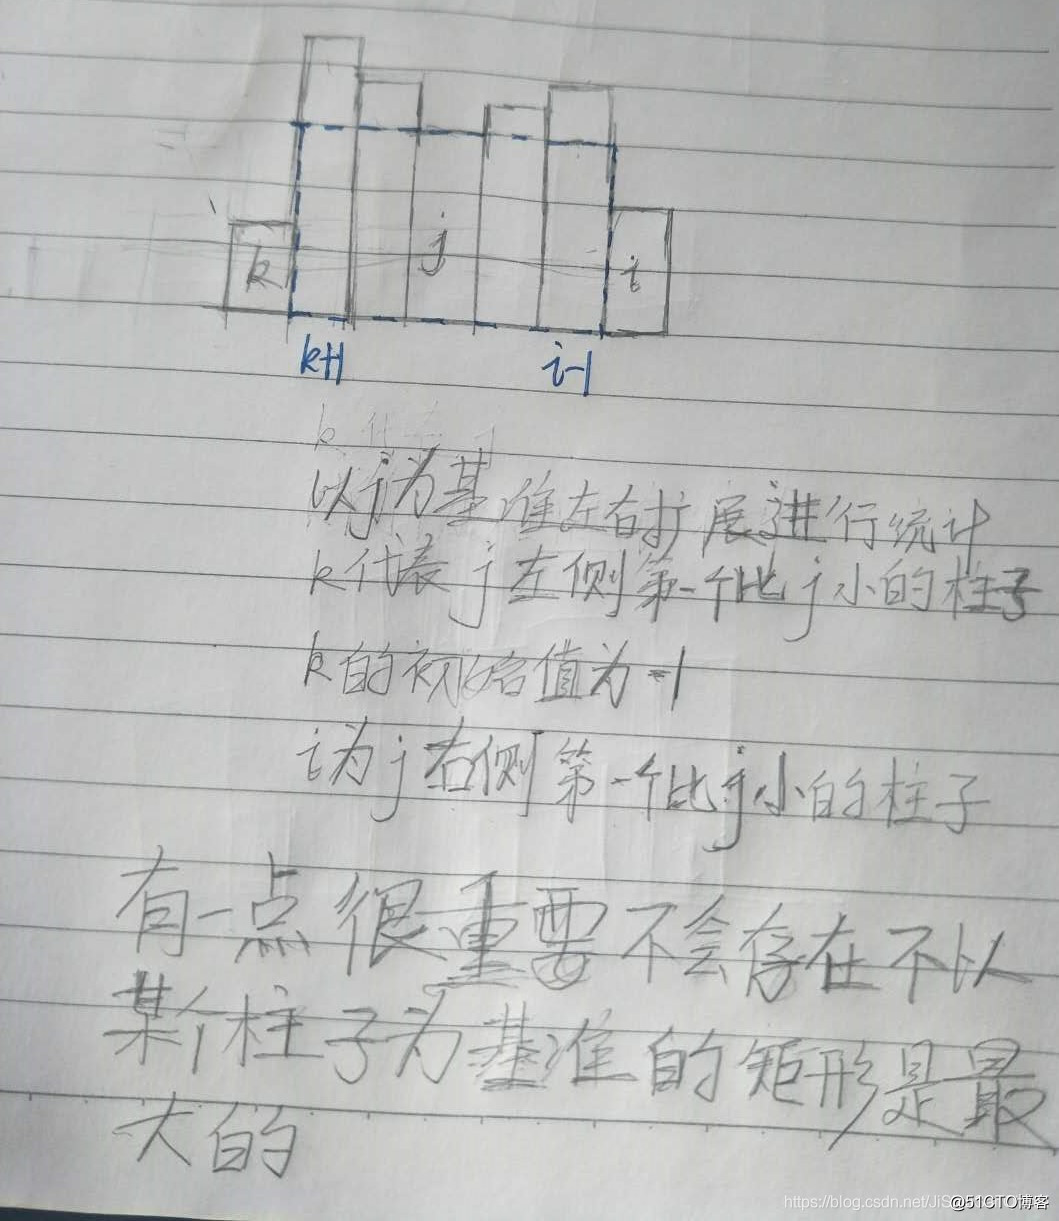 k j i
k+1 i-1
以j为基准左右扩展进行统计
k代表j左侧第一个比j小的柱子
k的初始值为-1
i为j右侧第一个比j小的柱子
有一点很重要不会存在不以
某个柱子为基准的矩形是最
大的
@51CTO博客